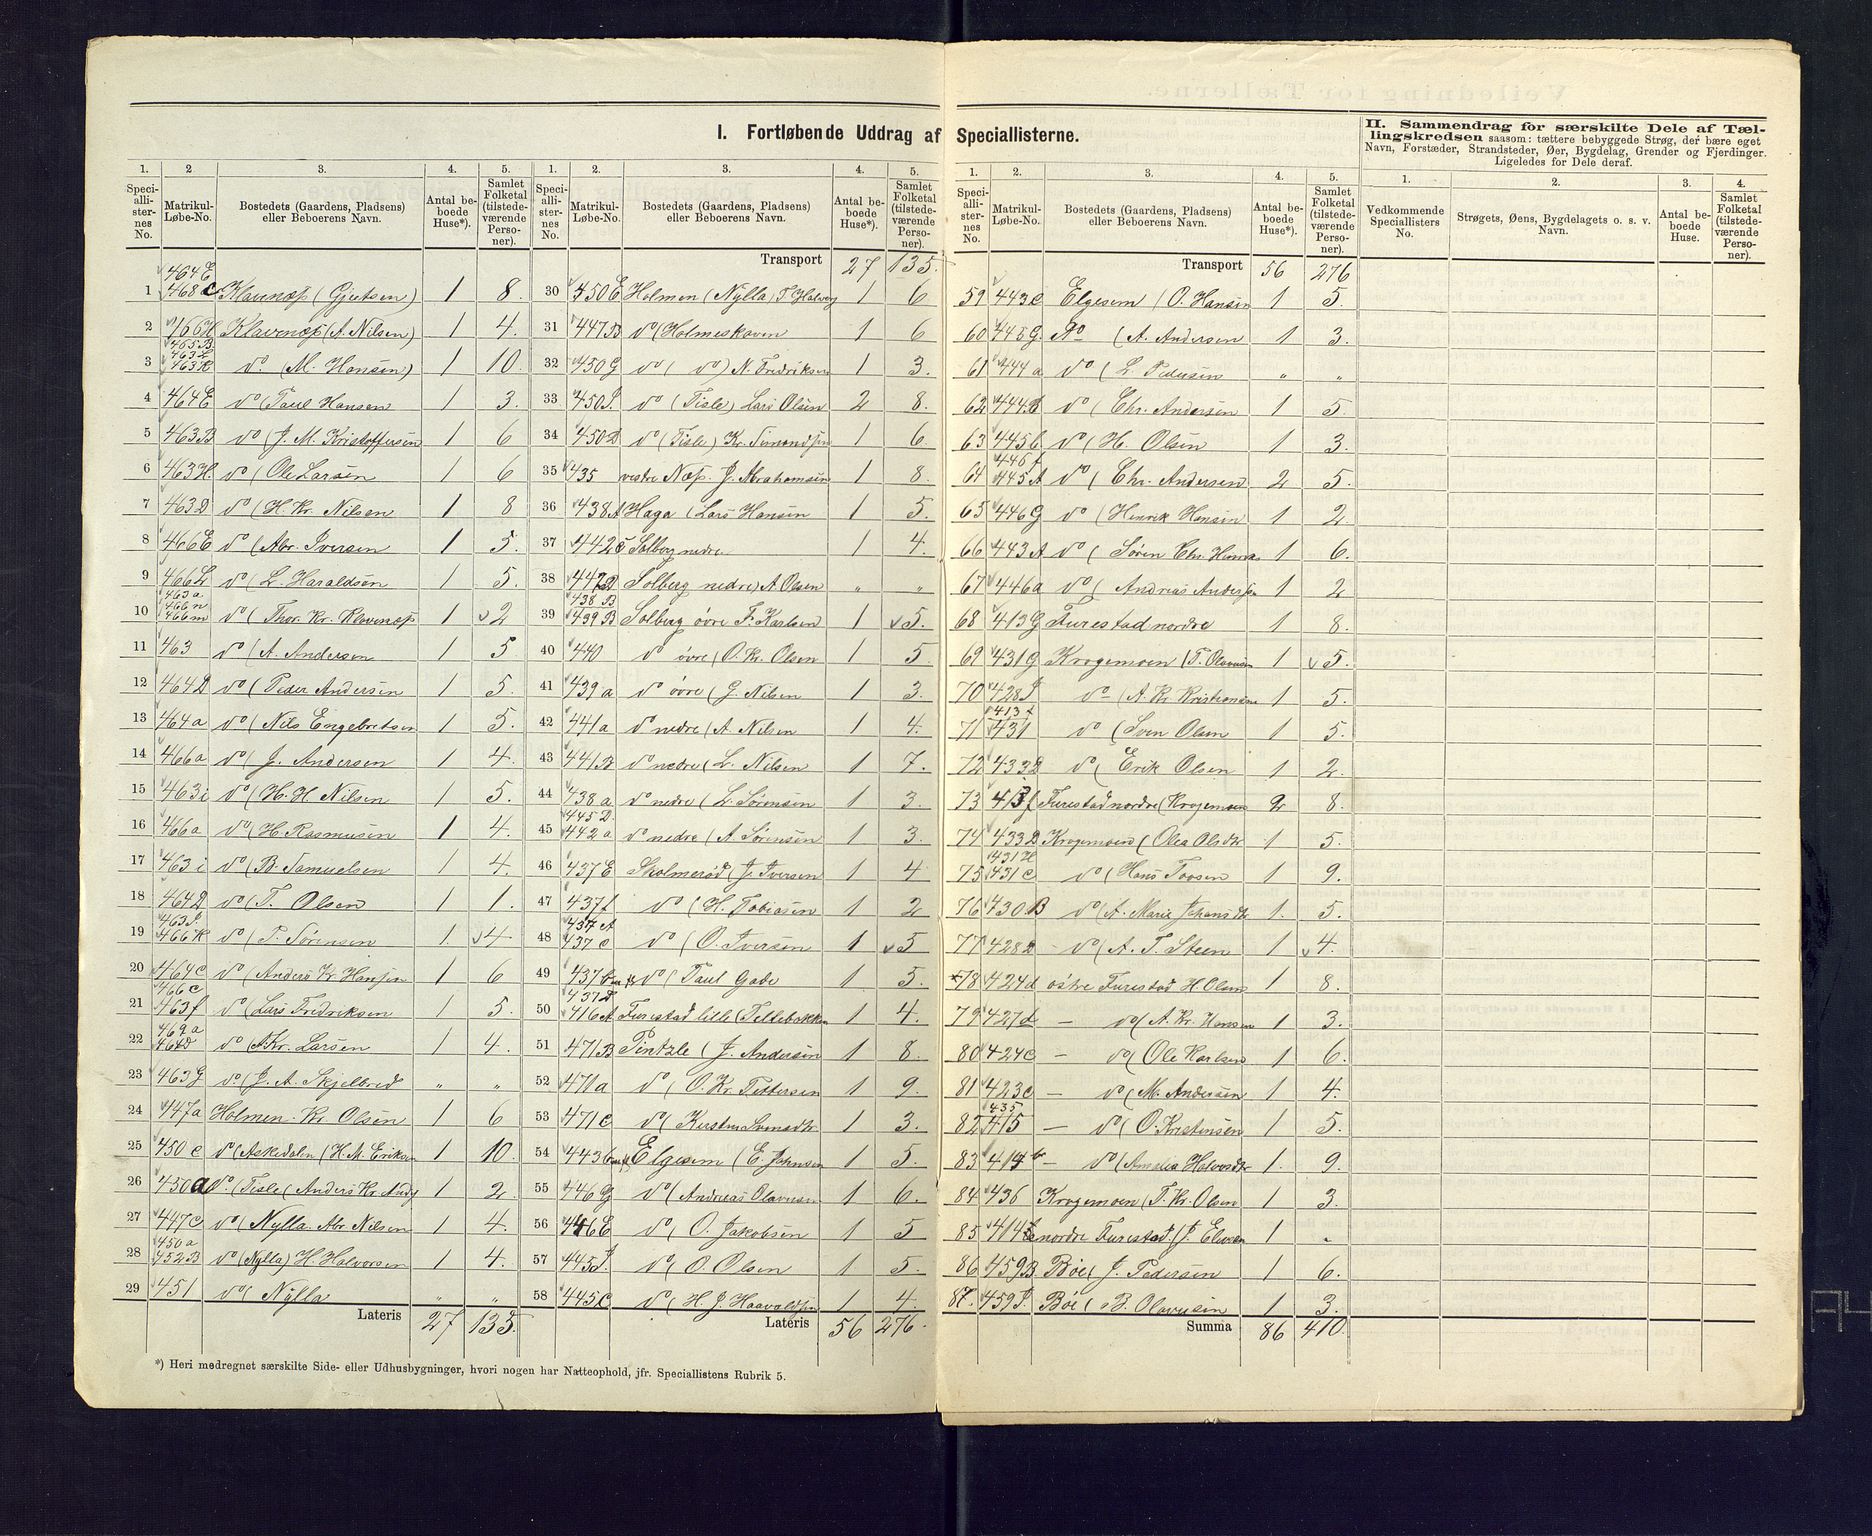 I. Fortløbende Uddrag af Speciallisterne.
II. Sammendrag for særskilte Dele af Tællingskredsen saasom: tættere bebyggede Strøg, der bære eget Navn, Forstæder, Strandsteder, Øer, Bygdelag, Grender og Fjerdinger. Ligeledes for Dele deraf.
1. 2 3. 4. 5.
Speciallisternes No. Matrikul-Løbe-No. Bostedets (Gaardens, Pladsens) eller Beboerens Navn. Antal beboede Huse*). Samlet Folketal (tilstedeværende Personer).
464 E
1 468 c Klavenæs (Gjertsen) 1 8.
2 466 H Klavenæs (A. Nilsen) 1 4.
465 B 463 L
3 463 K do. (M. Hansen) 1 10.
4 464 E do (Paul Hansen 1 3.
5 463 B do (J. M. Kristoffersen 1 6
6 463 H. do (Ole Larsen 1 6
7 463 D do (H. Kr. Nilsen 1 8
8 466 E do (Abr. Iversen 1 5.
9 466 L do (L. Haraldsen 1 5.
463 a 466 n
10 466 m do (Thor. Kr. Klavenæs 1 2
11 463 do (A. Andersen 1 5
12 464 D do (Peder Andersen 1 5.
13 464 a do (Nils Engebretsen 1 5.
14 466 a do (J. Andersen 1 4.
15 463 i do (H. H. Nilsen 1 5.
16 466 a do (H. Rasmusen 1 4.
17 463 i do (B. Samuelsen 1 4.
18 464 D do (T. Olsen 1 1.
463 I
19 466 K do (P. Sørensen 1. 4
20 464 c do (Anders Kr. Hansen 1 6
466 c
21 463 f do (Lars Fredriksen 1 5.
469 a
22 464 D do (A. Kr. Larsen 1 4.
23 463 G do. (J. A. Skjelbred " "
24 447 a Holmen. Kr. Olsen 1 6
25 450 c do (Askedalen (H. M. Eriksen 1 10.
26 450 a do (Tisle (Anders Kr. 1 2.
27 447 c do (Nylla. Abr. Nilsen 1 4.
450 a
28 452 B do (Nylla) H. Halvorsen 1 4.
29 451 do (Nylla " "
Lateris 27 135.
*) Heri medregnet særskilte Side- eller Udhusbygninger, hvori nogen har Natteophold, jfr. Speciallistens Rubrik 5.
1. 2. 3. 4. 5.
Speciallisternes No. Matrikul-Løbe-No. Bostedets (Gaardens, Pladsens) eller Beboerens Navn. Antal beboede Huse*). Samlet Folketal (tilstedeværende Personer).
Transport 27 135.
30 450 E Holmen (Nylla) T. Halvor 1 6
31 447 B do (Holmeskoven 1 6
32 450 G do ( do) N. Fredriksen 1 3.
33 450 I. do (Tisle) Lars Olsen 2 8.
34 450 D do (Tisle) Kr. Simondsen 1 6.
35 435 vestre Næs. J. Abrahamsen 1 8.
36 438 A Haga (Lars Hansen 1 5.
37 442 c Solberg nedre 1 4.
38 442 D Solberg nedre) A. Olsen " "
438 B
39 439 B Solberg øvre F. Karlsen 1 5.
40 440 do øvre (O. Kr. Olsen 1 5
41 439 a do øvre (G. Nilsen 1 3.
42 441 a do nedre (A. Nilsen 1 4.
43 441 B do nedre (L. Nilsen 1 7.
44 438 a do nedre (L. Sørensen 1 3.
445 D.
45 442 a do nedre (A. Sørensen 1 3.
46 437 E Skolmerød (J. Iversen 1 4
47 437 f do (H. Tobiasen 1 2
437 A
48 437 c do (O. Iversen 1 5
49 437 do (Paul Gade 1 5.
437 D
50 416 A Furestad lille (Teltebakken 1 4.
51 471 B Pintzle (J. Andersen 1 8.
52 471 a do (O. Kr. Pettersen 1 9.
53 471 c do (Kirstine Svensdtr 1 3.
54 443 Elgesem (E. Johnsen 1 5.
55 446 G do (Andreas Olavesen 1 6.
56 446 E do (O. Jakobsen 1 5
57 445 I. do (O. Olsen 1 5.
58 445 c do (H. J. Haavaldsen 1 4.
Lateris 56 276.
1. 2. 3. 4. 5.
Speciallisternes No. Matrikul-Løbe-No. Bostedets (Gaardens, Pladsens) eller Beboerens Navn. Antal beboede Huse*). Samlet Folketal (tilstedeværende Personer).
Transport 56 276
59 443 c Elgesem (O. Hansen 1 5.
60 445 G. do (A. Andersen 1 3.
61 444 a do (L. Pedersen " "
62 444 B do (Chr. Andersen 1 5.
63 445 b. do (H. Olsen 1 3.
446 f
64 445 A do (Chr. Andersen 2 5.
65 446 G do (Henrik Hansen 1 2.
66 443 A do (Søren Chr. 1 6.
67 446 a do (Andreas Andersen 1 2
68 413 G Furestad nordre 1 8.
69 431 G Krogemoen (T. Olavesen 1 5.
70 428 I do (A. Kr. Kristiansen 1 5.
413 f
71 431 do (Sven Olsen 1 5.
72 433 D do (Erik Olsen 1 2.
73 413 f Furestad nordre (Krogemoen 2 8.
74 433 D Krogemoen (Olea Olsdtr 1 5.
431 H
75 431 c do (Hans Toosen 1 9.
76 430 B do (A. Marie Johansdtr 1. 5.
77 428 D do (A. T. Steen 1 4.
78 424 d østre Furestad H. Olsen 1 8.
79 427 d — do (A. Kr. Hansen 1 3.
80 424 c — do (Ole Karlsen 1 6
81 423 c — do (M. Andersen 1 4.
435
82 415 — do (O. Kristensen 1 5.
83 414 b — do (Amalia Halvorsdtr 1. 9.
84 436 Krogemoen (T. Kr. Olsen 1 3.
85 414 nordre Furestad (J. Elvesen 1 -
86 459 B Böe (J. Pedersen 1 6.
87. 459 I. Böe (B. Olavesen 1 3.
Summa 86 410.
1. 2. 3. 4.
Vedkommende Speciallisters No. Strøgets, Øens, Bygdelagets o. s. v. Navn. Antal beboede Huse. Samlet Folketal (tilstedeværende Personer).